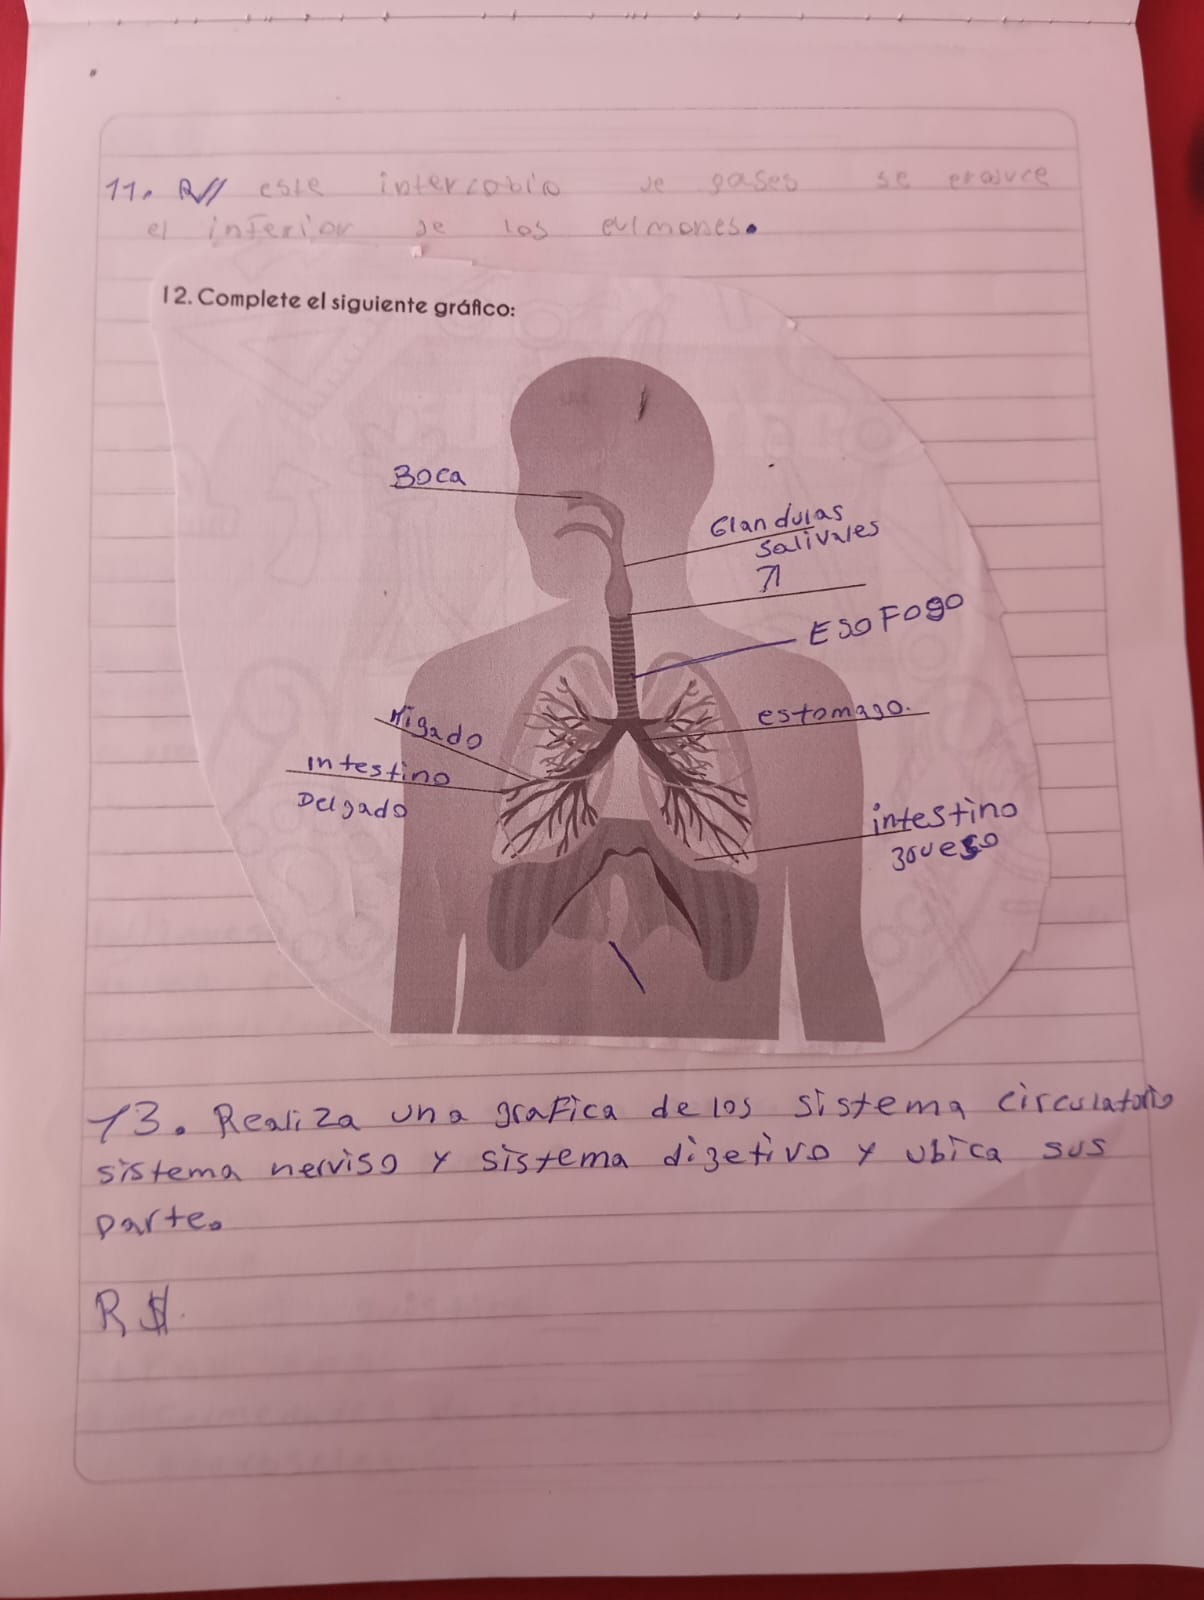 11. R// este intercabio de gases se produce
el inferior de los pulmones.
12. Complete el siguiente gráfico:
Boca
Glandulas
Salivales
ESOFOgO
Higado
estomago.
intestino
Delgado
intestino
grueso
13. Realiza una grafica de los sistema circulatorio
sistema nerviso y sistema digetivo y ubica sus
parte.
R//.